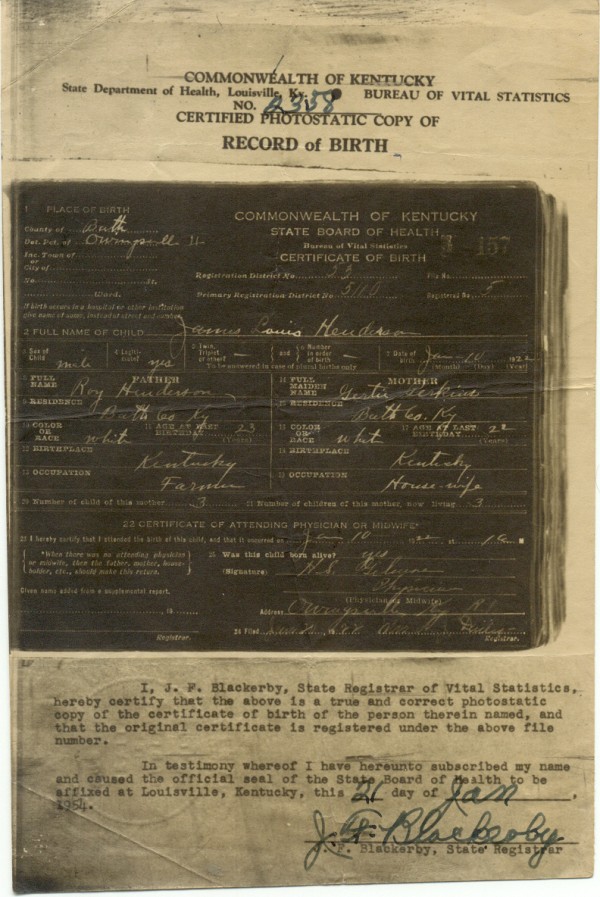 COMMONWEALTH OF KENTUCKY
State Department of Health, Louisville, Ky. BUREAU OF VITAL STATISTICS
NO. 2358
CERTIFIED PHOTOSTATIC COPY OF
RECORD of BIRTH
1 PLACE OF BIRTH
County of Bath
COMMONWEALTH OF KENTUCKY
STATE BOARD OF HEALTH
Bureau of Vital Statistics
CERTIFICATE OF BIRTH
157
Vot. Pct. of Owingsvill 11
Inc. Town of
or
City of
No. St.
Ward.
Registration District No. 53 File No.
Primary Registration District No. 5110 Registered No. 5
If birth occurs in a hospital or other institution
give name of same, instead of street and number
2 FULL NAME OF CHILD James Louis Henderson
3 Sex of Child male 4 Legitimate? yes 5 Twin, Triplet or other? — and 6 Number in order of birth — 7 Date of birth Jan 10 1922
(To be answered in case of plural births only) (Month) (Day) (Year)
FATHER
8 FULL NAME Roy Henderson
9 RESIDENCE Bath Co Ky
10 COLOR OR RACE white 11 AGE AT LAST BIRTHDAY 23 (Years)
12 BIRTHPLACE Kentucky
13 OCCUPATION Farmer
MOTHER
14 FULL MAIDEN NAME Gertie
15 RESIDENCE Bath Co. Ky
16 COLOR OR RACE whit 17 AGE AT LAST BIRTHDAY 22 (Years)
18 BIRTHPLACE Kentucky
19 OCCUPATION House-wife
20 Number of child of this mother 3 21 Number of children of this mother, now living 3
22 CERTIFICATE OF ATTENDING PHYSICIAN OR MIDWIFE*
I hereby certify that I attended the birth of this child, and that it occurred on Jan 10 1922 at 1 a M
*When there was no attending physician
or midwife, then the father, mother, house-
holder, etc., should make this return.
23 Was this child born alive? yes
(Signature) H.S.
Physician
(Physician or Midwife)
Given name added from a supplemental report.
19
Registrar.
Address Owingsville Ky R
24 Filed 19
Registrar.
I, J. F. Blackerby, State Registrar of Vital Statistics,
hereby certify that the above is a true and correct photostatic
copy of the certificate of birth of the person therein named, and
that the original certificate is registered under the above file
number.
In testimony whereof I have hereunto subscribed my name
and caused the official seal of the State Board of Health to be
affixed at Louisville, Kentucky, this 21 day of Jan,
1954.
J. F. Blackerby
J. F. Blackerby, State Registrar